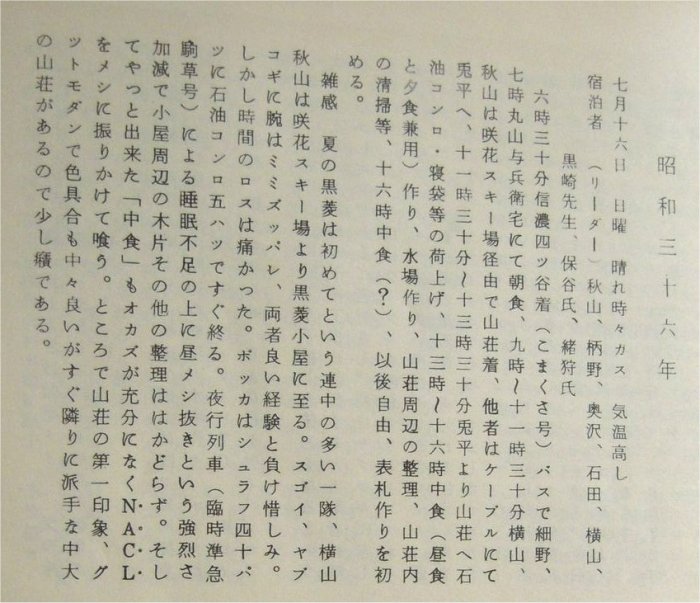 昭和三十六年
七月十六日　日曜　晴れ時々ガス　気温高し
宿泊者　（リーダー）秋山、柄野、奥沢、石田、横山、
黒崎先生、保谷氏、緒狩氏
六時三十分信濃四ッ谷着（こまくさ号）バスで細野、
七時丸山与兵衛宅にて朝食、九時〜十一時三十分横山、
秋山は咲花スキー場径由で山荘着、他者はケーブルにて
兎平へ、十一時三十分〜十三時三十分兎平より山荘へ石
油コンロ・寝袋等の荷上げ、十三時〜十六時中食（昼食
と夕食兼用）作り、水場作り、山荘周辺の整理、山荘内
の清掃等、十六時中食（？）、以後自由、表札作りを初
める。
雑感　夏の黒菱は初めてという連中の多い一隊、横山
秋山は咲花スキー場より黒菱小屋に至る。スゴイ、ヤブ
コギに腕はミミズッパレ、両者良い経験と負け惜しみ。
しかし時間のロスは痛かった。ボッカはシュラフ四十パ
ツに石油コンロ五ハツですぐ終る。夜行列車（臨時準急
駒草号）による睡眠不足の上に昼メシ抜きという強烈さ
加減で小屋周辺の木片その他の整理ははかどらず。そし
てやっと出来た「中食」もオカズが充分になくN.A.C.L.
をメシに振りかけて喰う。ところで山荘の第一印象、グ
ットモダンで色具合も中々良いがすぐ隣りに派手な中大
の山荘があるので少し癪である。